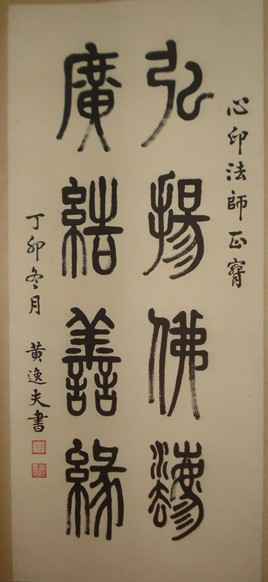 心印法師正
弘揚佛灋
廣結善緣
丁卯冬月 黃逸夫書